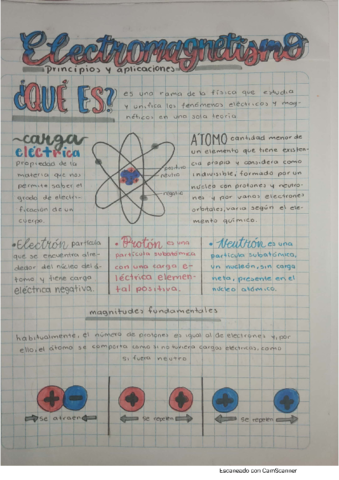 Electromagnetismo
principios y aplicaciones
¿QUÉ ES?
es una rama de la física que estudia
y unifica los fenómenos eléctricos y mag-
néticos en una sola teoría
~carga
eléctrica
propiedad de la
materia que nos
permite saber el
grado de electri-
ficación de un
cuerpo.
positivo
neutro
negativo
ATOMO cantidad menor de
un elemento que tiene existen-
cia propia y considera como
indivisible, formado por un
núcleo con protones y neutro-
nes y por varios electrones
orbitales, varia según el ele-
mento químico.
•Electrón partícula
que se encuentra alre-
dedor del núcleo del á-
tomo y tiene carga
eléctrica negativa.
•Protón es una
partícula subatómica
con una carga e-
léctrica elemen-
tal positiva.
•Neutrón es una
partícula subatómica,
un nucleón, sin carga
neta, presente en el
núcleo atómico.
magnitudes fundamentales
habitualmente, el número de protones es igual al de electrones y, por
ello, el átomo se comporta como si no tuviera cargas eléctricas, como
si fuera neutro.
+ -
+ +
+ +
se atraen
se repelen
se repelen
Escaneado con CamScanner